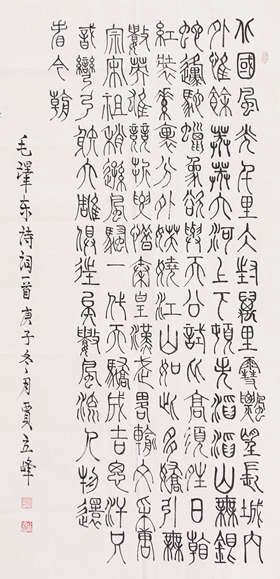 北國風光千里冰封萬里雪飄望長城內
外惟餘莽莽大河上下頓失滔滔山舞銀
蛇原馳蠟象欲與天公試比高須晴日看
紅裝素裹分外妖嬈江山如此多嬌引無
數英雄競折腰惜秦皇漢武略輸文采唐
宗宋祖稍遜風騷一代天驕成吉思汗只
識彎弓射大雕俱往矣數風流人物還
看今朝
毛澤東詩詞一首庚子冬月夏立峰